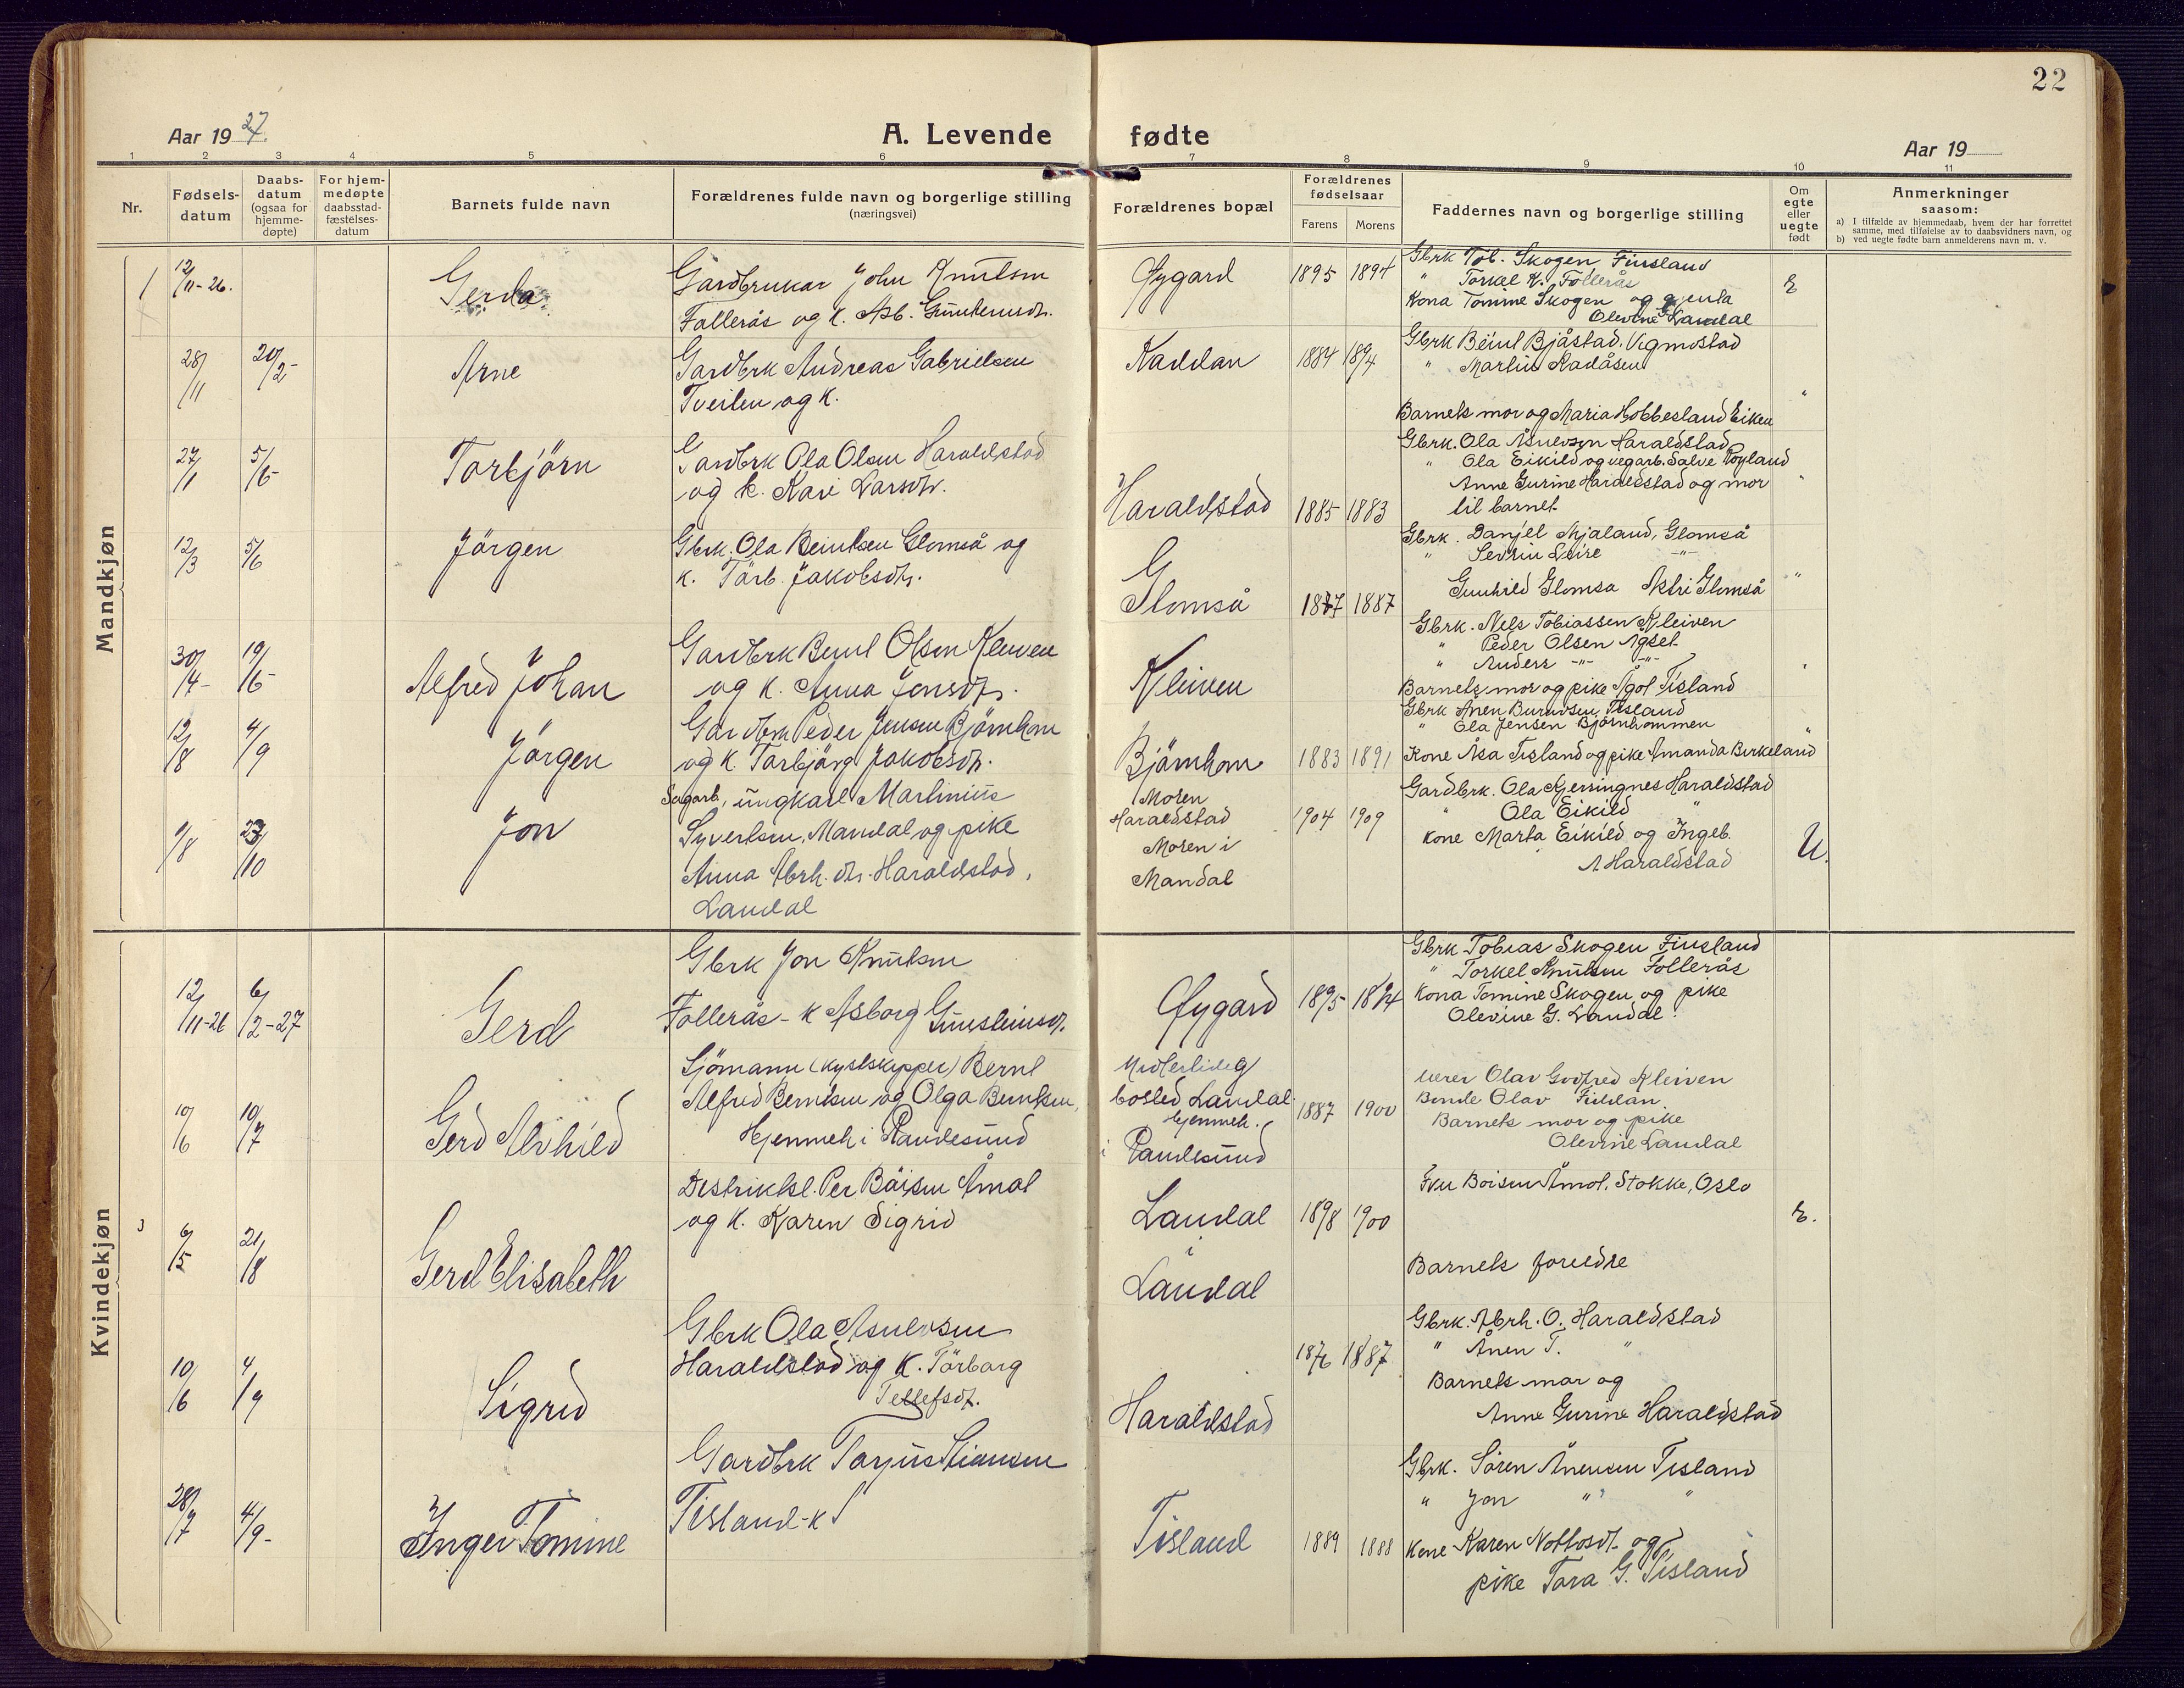 22
Aar 19 27.
A. Levende fødte
Aar 19
1 2 3 4 5 6 7 8 9 10 11
Nr.
Fødsels-
datum
Daabs-
datum
(ogsaa for
hjemme-
døpte)
For hjem-
medøpte
daabsstad-
fæstelses-
datum
Barnets fulde navn
Forældrenes fulde navn og borgerlige stilling
(næringsvei)
Forældrenes bopæl
Forældrenes
fødselsaar
Farens Morens
Faddernes navn og borgerlige stilling
Om
egte
eller
uegte
født
Anmerkninger
saasom:
a) I tilfælde av hjemmedaab, hvem der har forrettet
samme, med tilføielse av to daabsvidners navn, og
b) ved uegte fødte barn anmelderens navn m. v.
Mandkjøn
1 12/11-26. Gerda
Gardbrukar John Knutsen
Follerås og k. Asb. Gunsteinsdtr.
Øygard 1895 1894
Gbrk Tob. Skogen Finsland
" Torkel K. Follerås
Kona Tomine Skogen og gjenta
Olevine Landal
E
28/11 20/2- Arne
Gardbrk Andreas Gabrielsen
Tveiten og k.
Kaddan 1884 1894
Gbrk Beint Bjåstad, Vigmostad
" Martin Kadåsen
Barnets mor og Maria Hobbesland Eiken
"
27/1 5/6- Torbjörn
Gardbrk Ola Olsen Haraldstad
og k. Kari Larsdtr.
Haraldstad 1885 1883
Gbrk. Ola Åsulvsen Haraldstad
" Ola Eikild og vegarb. Salve Röyland
Anne Gurine Haraldstad og mor
til barnet
"
12/3 5/6 Jörgen
Gbrk. Ola Beintsen Glomså og
k. Torb. Jakobsdtr.
Glomså 1877 1887
Gbrk. Danjel Mjaland, Glomså
" Sevrin Leire -"-
Gunhild Glomsa Astri Glomså
"
30/4- 19/6- Alfred Johan
Gardbrk Bernt Olsen Kleiven
og k. Anna Jonsdtr.
Kleiven
Gbrk. Nels Tobiassen Kleiven
" Peder Olsen Ågset
" Anders -"- -"-
Barnets mor og pike Ågot Tisland
"
12/8 4/9 Jörgen
Gardbrk Peder Jensen Björnhom
og k. Torbjörg Jakobsdtr.
Björnhom 1883 1891
Gbrk Ånen Tisland
" Ola Jensen Bjørnhommen
Kone Åsa Tisland og pike Amanda Birkeland
"
9/8 23/10 Jon
Sagarb, ungkarl Martinius
Syvertsen, Mandal og pike
Anna Abrh. dtr. Haraldstad,
Landal
Moren
Haraldstad
Moren i
Mandal
1904 1909
Gardbrk. Ola Gjerningnes Haraldstad
" Ola Eikild "
kone Marta Eikild og Ingeb.
A Haraldstad
U.
Kvindekjøn
12/11-26 6/2-27 Gerd
Gbrk Jon Knutsen
Follerås - k Asborg Gunsteinsdt.
Øygard 1895 1894
Gbrk Tobias Skogen Finsland
" Torkel Knutsen Follerås
Kona Tomine Skogen og pike
Olevine G. Landal.
10/6 10/7 Gerd Alvhild
Sjömann (kystskipper) Bernt
Alfred Berntsen og Olga Berntsen,
Hjemmeh. i Randesund
Midlertidig
bosted Landal.
hjemmeh.
i Randesund
1887 1900
lærer Olav Godtfred Kleiven
Bonde Olav Fiddan
Barnets mor og pike
Olevine Landal
3 6/5 21/8 Gerd Elisabeth
Distriktsl. Per Böisen Åmot
og k. Karen Sigrid
Landal 1898 1900
i
Landal
Fru Boisen Åmot, Stokke, Oslo
Barnets foreldre
E.
10/6 4/9 Sigrid
Gbrk Ola Asulvsen
Haraldstad og k. Törborg
Tellefsdt.
Haraldstad
1876 1887
Gbrk. Abrh. O. Haraldstad
" Ånen T. "
Barnets mor og
Anne Gurine Haraldstad
28/7 4/9- Inger Tomine
Gardbrk Tarjus Stiansen
Tisland - k
Tisland 1889 1888
Gbrk. Sören Ånensen Tisland
" Jon " "
Kone Karen Nottosdt. og
pike Tora G. Tisland